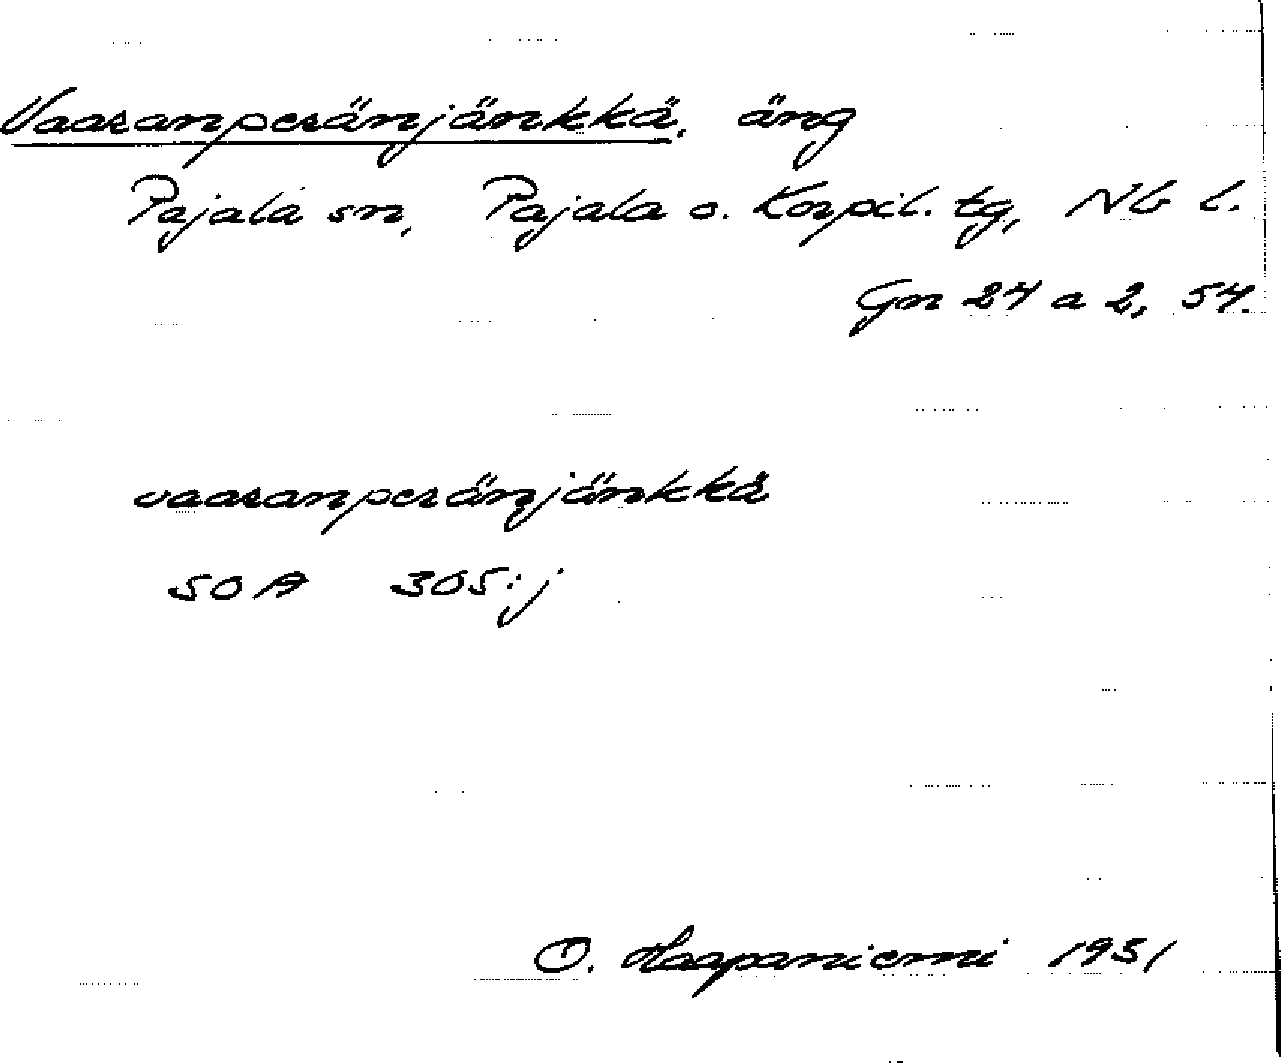 Vaaranperänjänkkä, äng
Pajala sn, Pajala o. Korpil. tg, Nb l.
Gn 24 a 2, 54.
vaaranperänjänkkä
SOA 305:j
O. Haapaniemi 1951